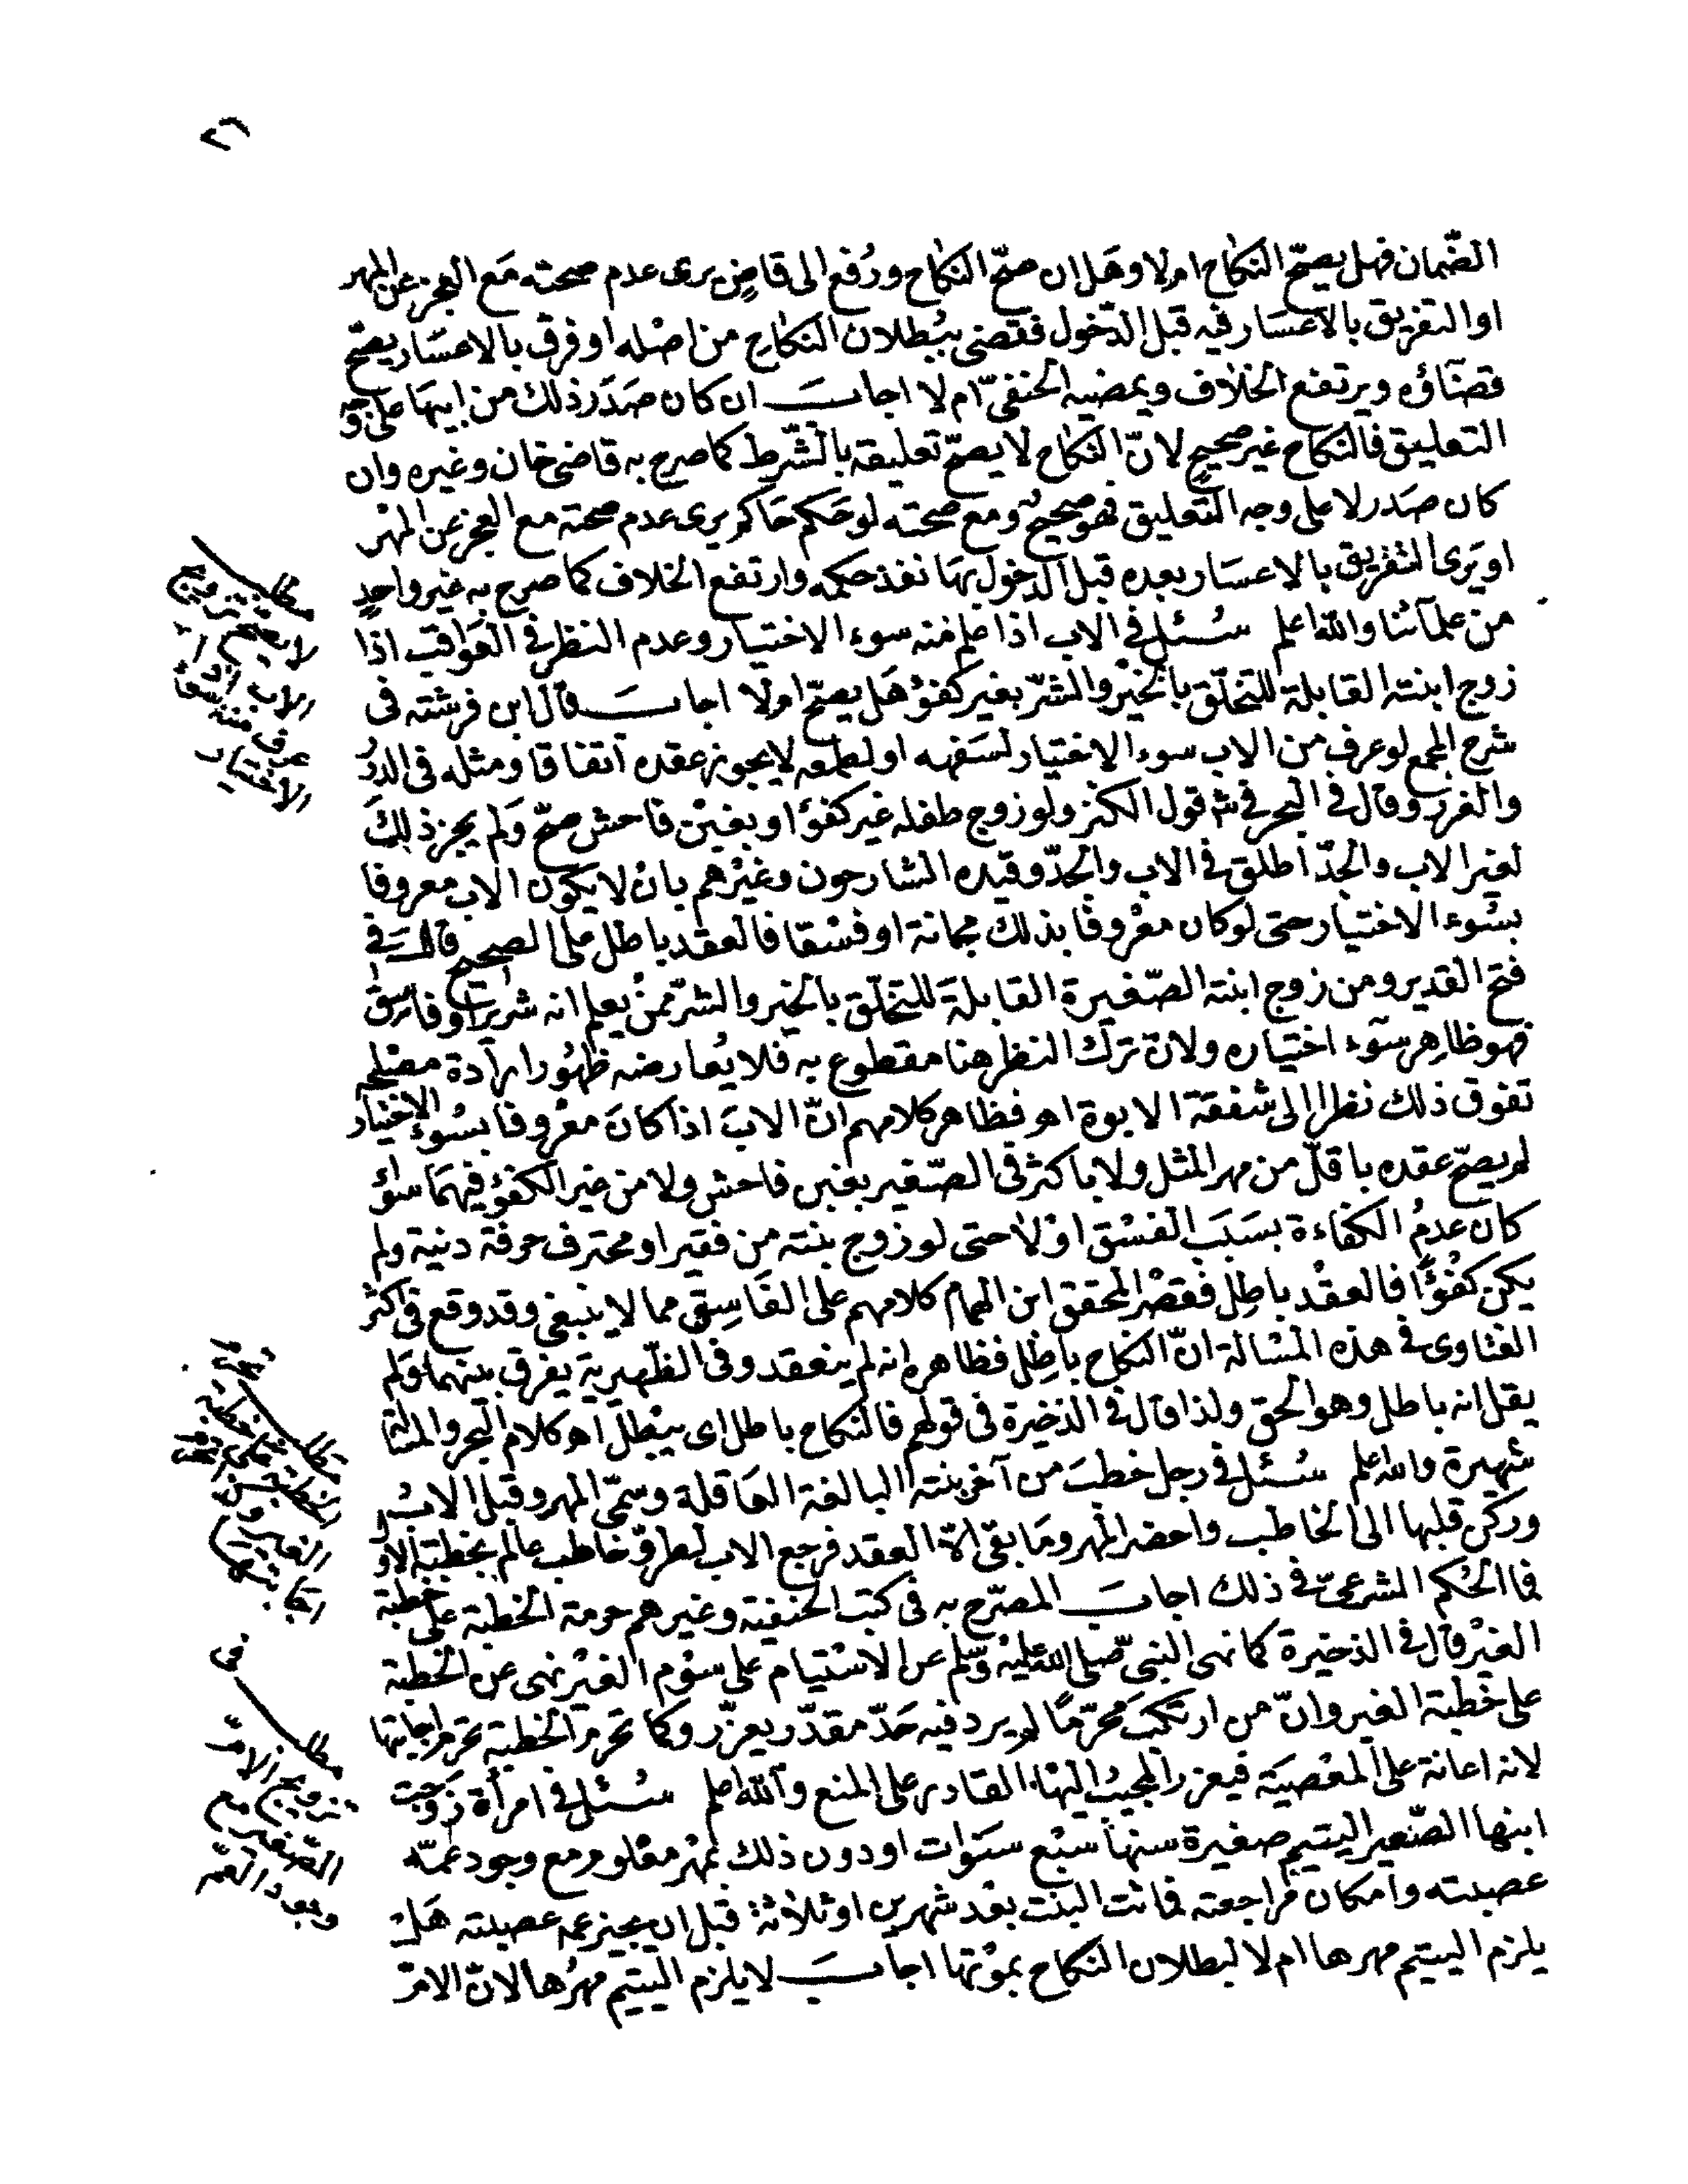 ٢٦
الضّمان فهل يصحّ النكاح ام لا وهل ان صحّ النكاح ورُفع الى قاضٍ يرى عدم صحته مَع العجز عن المهر
او التفريق بالاعسَار فيه قبل الدّخول فقضى ببُطلان النكاح من اصْله او فرق بالاعسَار يصحّ
قضآؤه ويرتفع الخلاف ويمضيه الحنفىّ ام لا اجابَ ان كان صَدَر ذلك من ابيهَا على وجه
التعليق فالنكاح غير صحيح لانّ النكاح لا يصحّ تعليقه بالشّرط كما صرح به قاضى خان وغيره وان
كان صَدر لا على وجه التعليق فهو صحيحٌ ومع صحته لو حَكم حَاكم يرى عدم صحته مع العجز عن المهْر
او يَرى التفريق بالاعسَار بعده قبل الدخول بهَا نفذ حكمه وارتفع الخلاف كما صرح به غير واحدٍ
من علمآئنا والله اعلم سُئل فى الاب اذا علم منه سوء الاختيار وعدم النظر فى العَواقب اذا
زوج ابنته القابلة للتخلّق بالخيْر والشرّ بغير كفؤ هَل يصحّ ام لا اجابَ قال ابن فرشته فى
شرح المجمع لو عرف من الاب سوء الاختيار لسَفهه او لطمعه لا يجوز عقده اتفاقا ومثله فى الدرُ
والغرر وقال فى البحر فى شـ قول الكنز ولو زوج طفله غير كفؤ او بغبْن فاحش صحّ وَلم يجز ذلكَ
لغير الاب والجدّ اطلق فى الاب والجدّ وقيده الشارحون وغيْرهم بانْ لا يكون الاب معروفا
بسُوء الاختيار حتى لو كان معْروفا بذلك مجانة او فسْقا فالعقد باطل على الصحيح قالَ فى
فتح القدير ومن زوج ابنته الصّغيرة القابلةَ للتخلّق بالخير والشرّ ممنْ يعلم انه شرير او فاسِق
فهو ظاهِر سوء اختياره ولان ترك النظر هنا مقطوع به فلا يُعارضه ظهُور ارادة مصْلحة
تفوق ذلك نظرا الى شفقة الابوة اهـ فظاهر كلامهم انّ الابَ اذا كانَ معْروفا بسُوء الاختيار
لم يصحّ عقده باقلّ من مهر المثل ولا باكثر فى الصّغير بغبن فاحش ولا من غير الكفؤ فيهمَا سوأ
كان عدمُ الكفاءة بسَبَب الفسْق اوْ لا حتى لو زوج بنته من فقير او محترف حرفة دنية ولم
يكن كفُؤًا فالعقْد باطِل فقصْر المحقق ابن الهمام كلامهم على الفَاسِق مما لا ينبغى وقد وقع فى اكثر
الفتاوى فى هذه المسْالة انّ النكاح باطِل فظاهره انه لم ينعقد وفى الظّهيرية يفرق بينهما وَلم
يقل انه باطل وهو الحق ولذا قال فى الذخيرة فى قولهم فالنكاح باطل اى يبْطل اهـ كلام البحر والمسْالة
شهيرة والله اعلم سُئل فى رجل خطبَ من آخر بنته البالغة العَاقلة وسمّى المهر وقبل الاب
وركن قلبها الى الخاطب واحضر المهر ومَا بقى الّا العقد فرجع الاب لطروّ خاطب عالم بخطبة الاول
فما الحُكم الشرعىّ فى ذلك اجابَ المصرّح به فى كتب الحنفية وغيرهم حرمة الخطبة على خطبة
الغيْر قال فى الذخيرة كما نهى النبىّ صلى الله عليْه وسّلم عن الاسْتيام على سوْم الغيْر نهى عن الخطبة
على خطبة الغير وانّ من ارتكبَ محرّمًا لم يرد فيه حَدّ مقدّر يعزّر وكما تحرم الخطبة تحرم اجابتها
لانه اعانة على المعْصيَة فيعزر المجيبُ اليْهَا القادر على المنع والله اعلم سُئل فى امرأة زَوّجت
ابنها الصّغير اليتيم صغيرة سنهاَ سبْع سَنَوات او دون ذلك بمهْر معْلوم مع وجود عَمّه
عصبته وامكان مراجعته فماتت البنت بعْد شهرين او ثلاثة قبل ان يجيز عمه عصبته هَلْ
يلزم اليتيم مهرها ام لا لبطلان النكاح بموْتها اجابَ لا يلزم اليتيم مهرُها لانّ الامّ
مطلب تزويج
لا يصح
الاب اذا
عرف منه سوء
الاختيار
مطلب
خطبة
الغير
فى
مطلب
تزويج الامّ
الصّغير مع
وجود العمّ